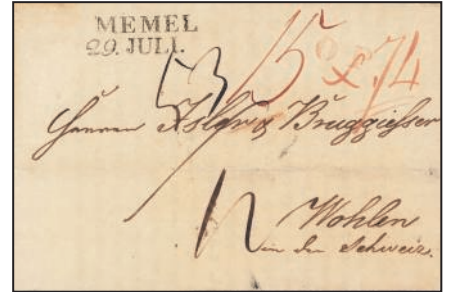 MEMEL
29. JULI.
53 15 x. 74
Herren Isler & Bruggisser
Wohlen
in der Schweiz.